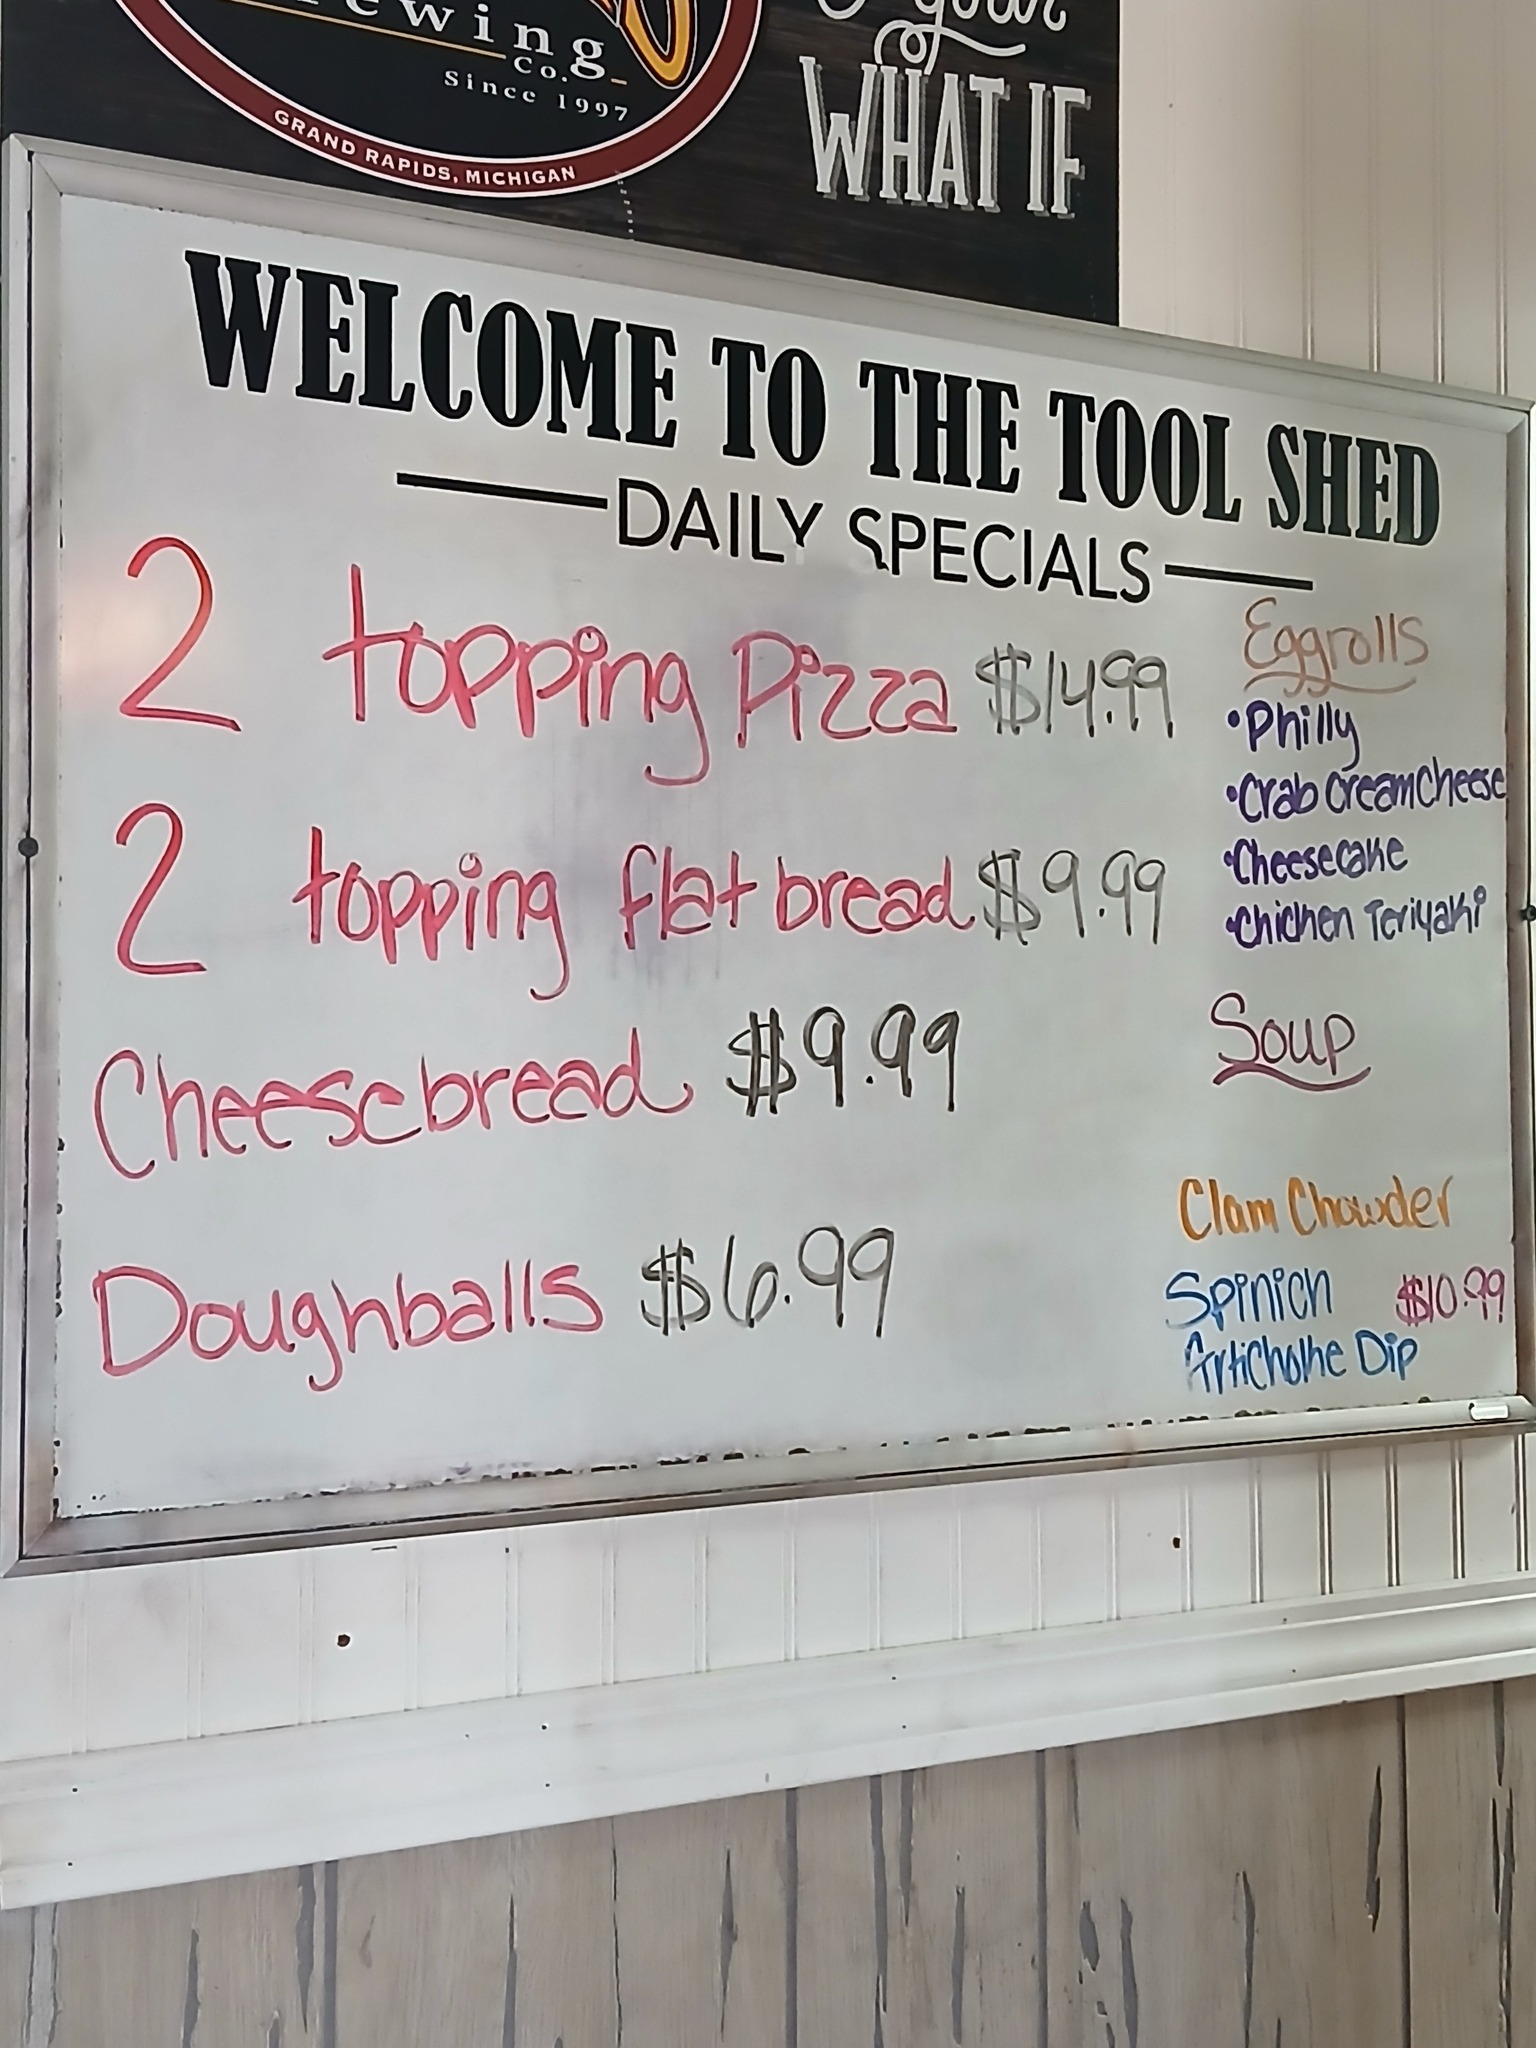 Brewing
Co.
Since 1997
GRAND RAPIDS, MICHIGAN
your
WHAT IF
WELCOME TO THE TOOL SHED
DAILY SPECIALS
2 topping Pizza $14.99
2 topping flat bread $9.99
Cheesebread $9.99
Doughballs $6.99
Eggrolls
•Philly
•Crab Cream Cheese
•Cheesecake
•Chicken Teriyaki
Soup
Clam Chowder
Spinich $10.99
Artichoke Dip